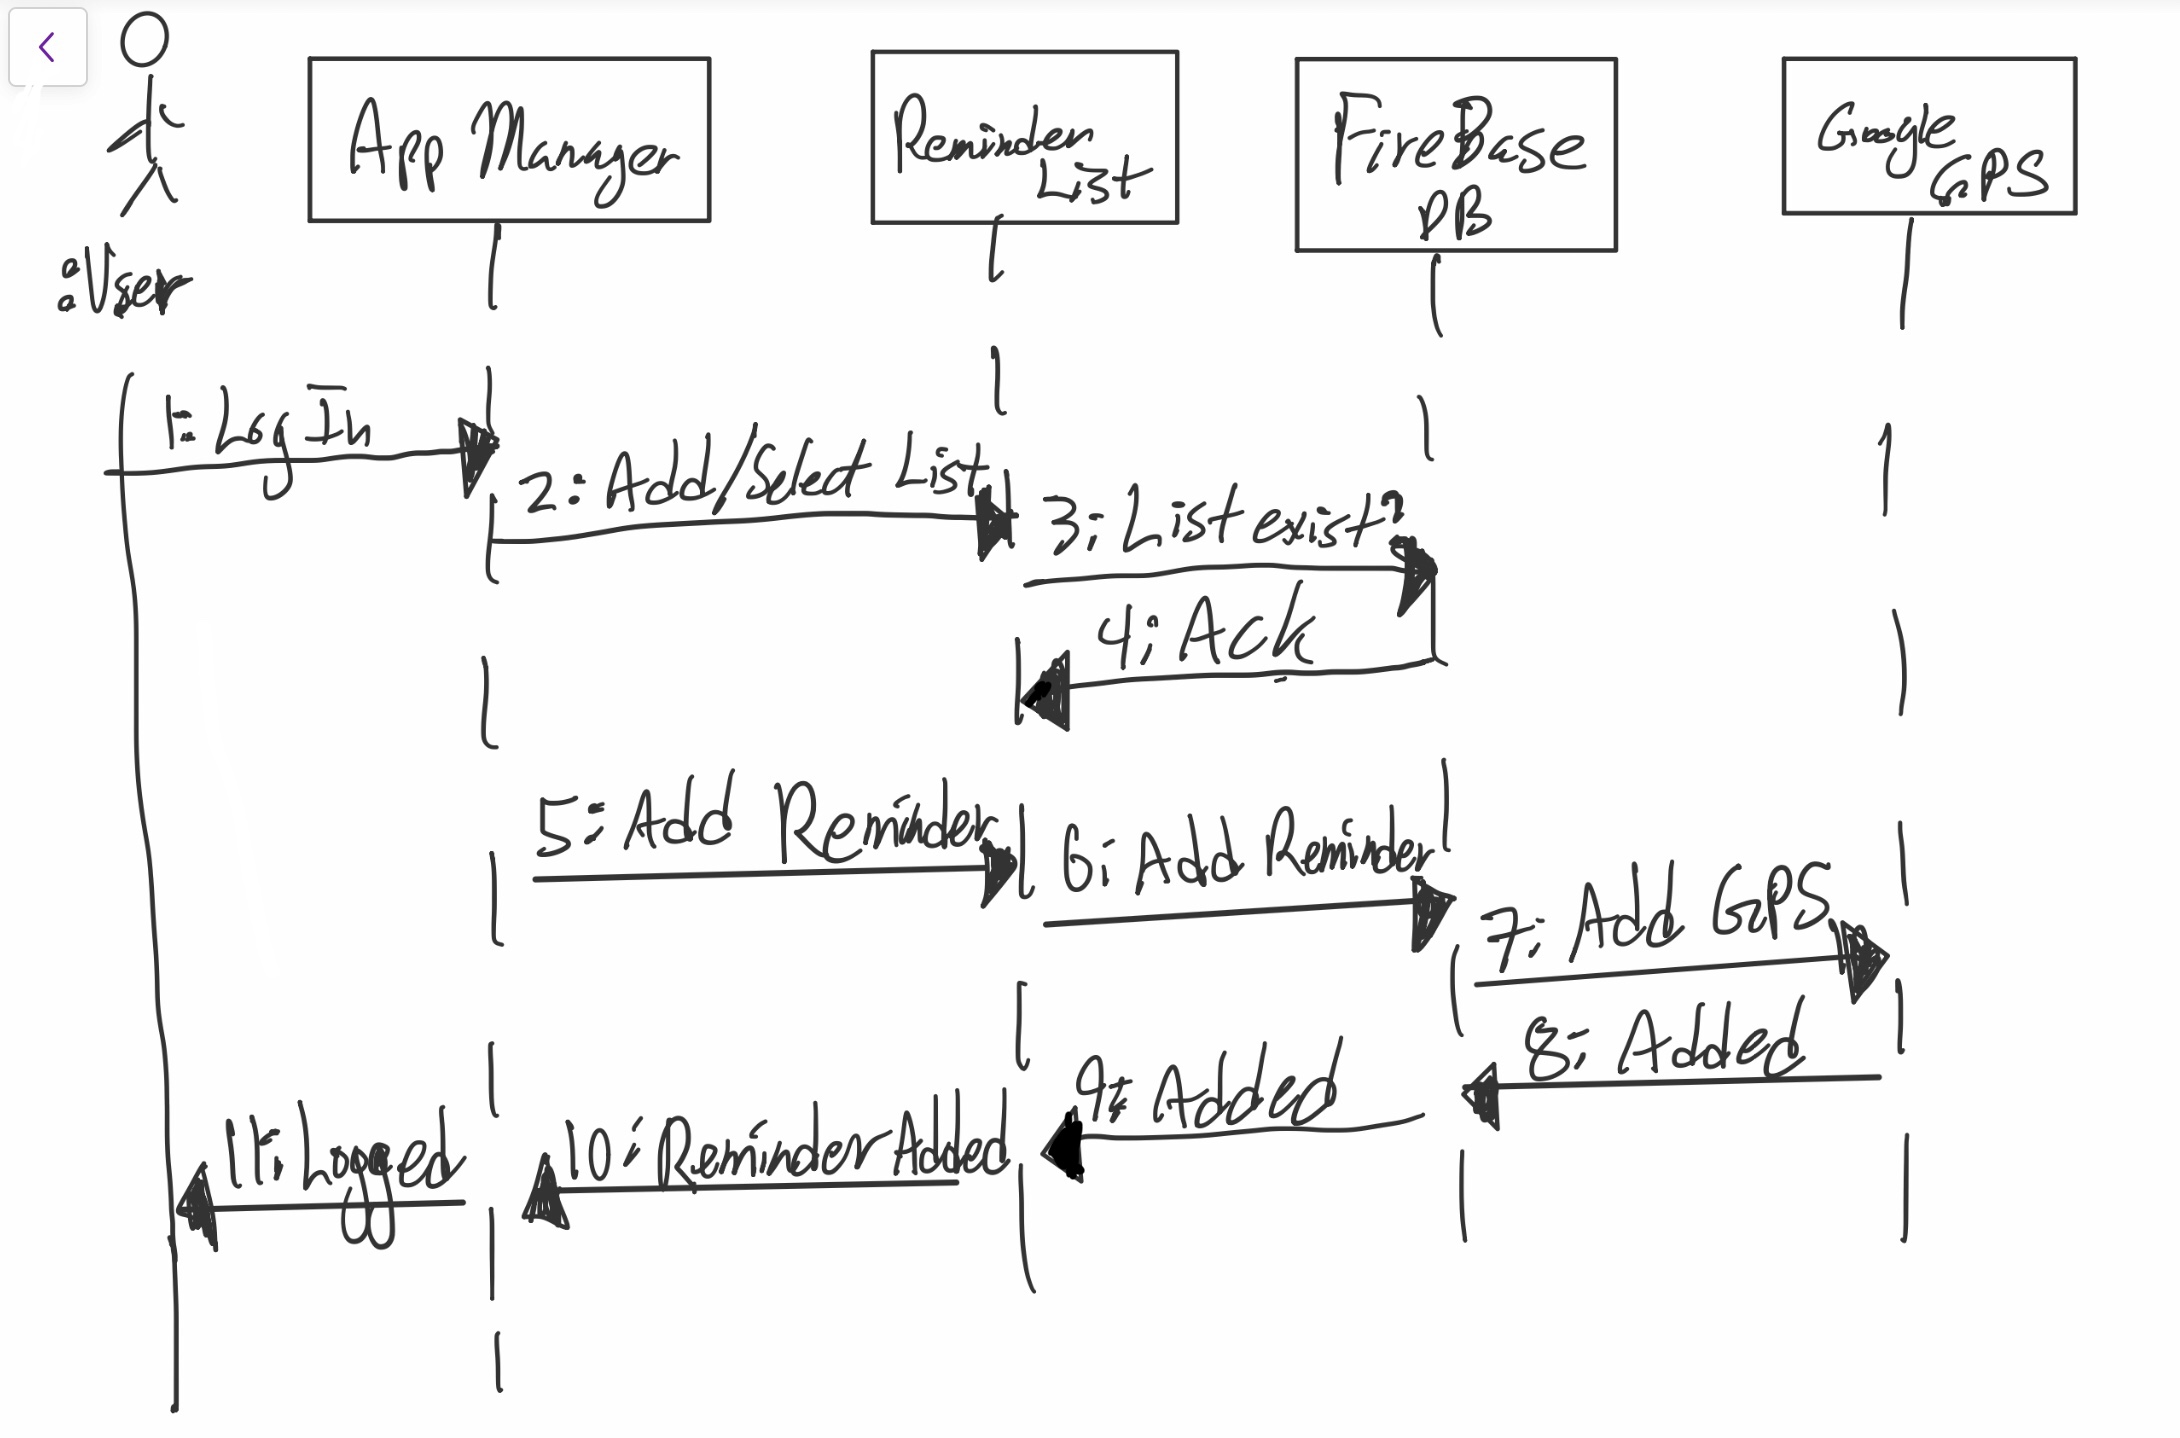 App Manager
Reminder
List
FireBase
DB
Google
GPS
:User
1: Log In
2: Add/Select List
3: List exist?
4: Ack
5: Add Reminder
6: Add Reminder
7: Add GPS
8: Added
9: Added
10: Reminder Added
11: Logged